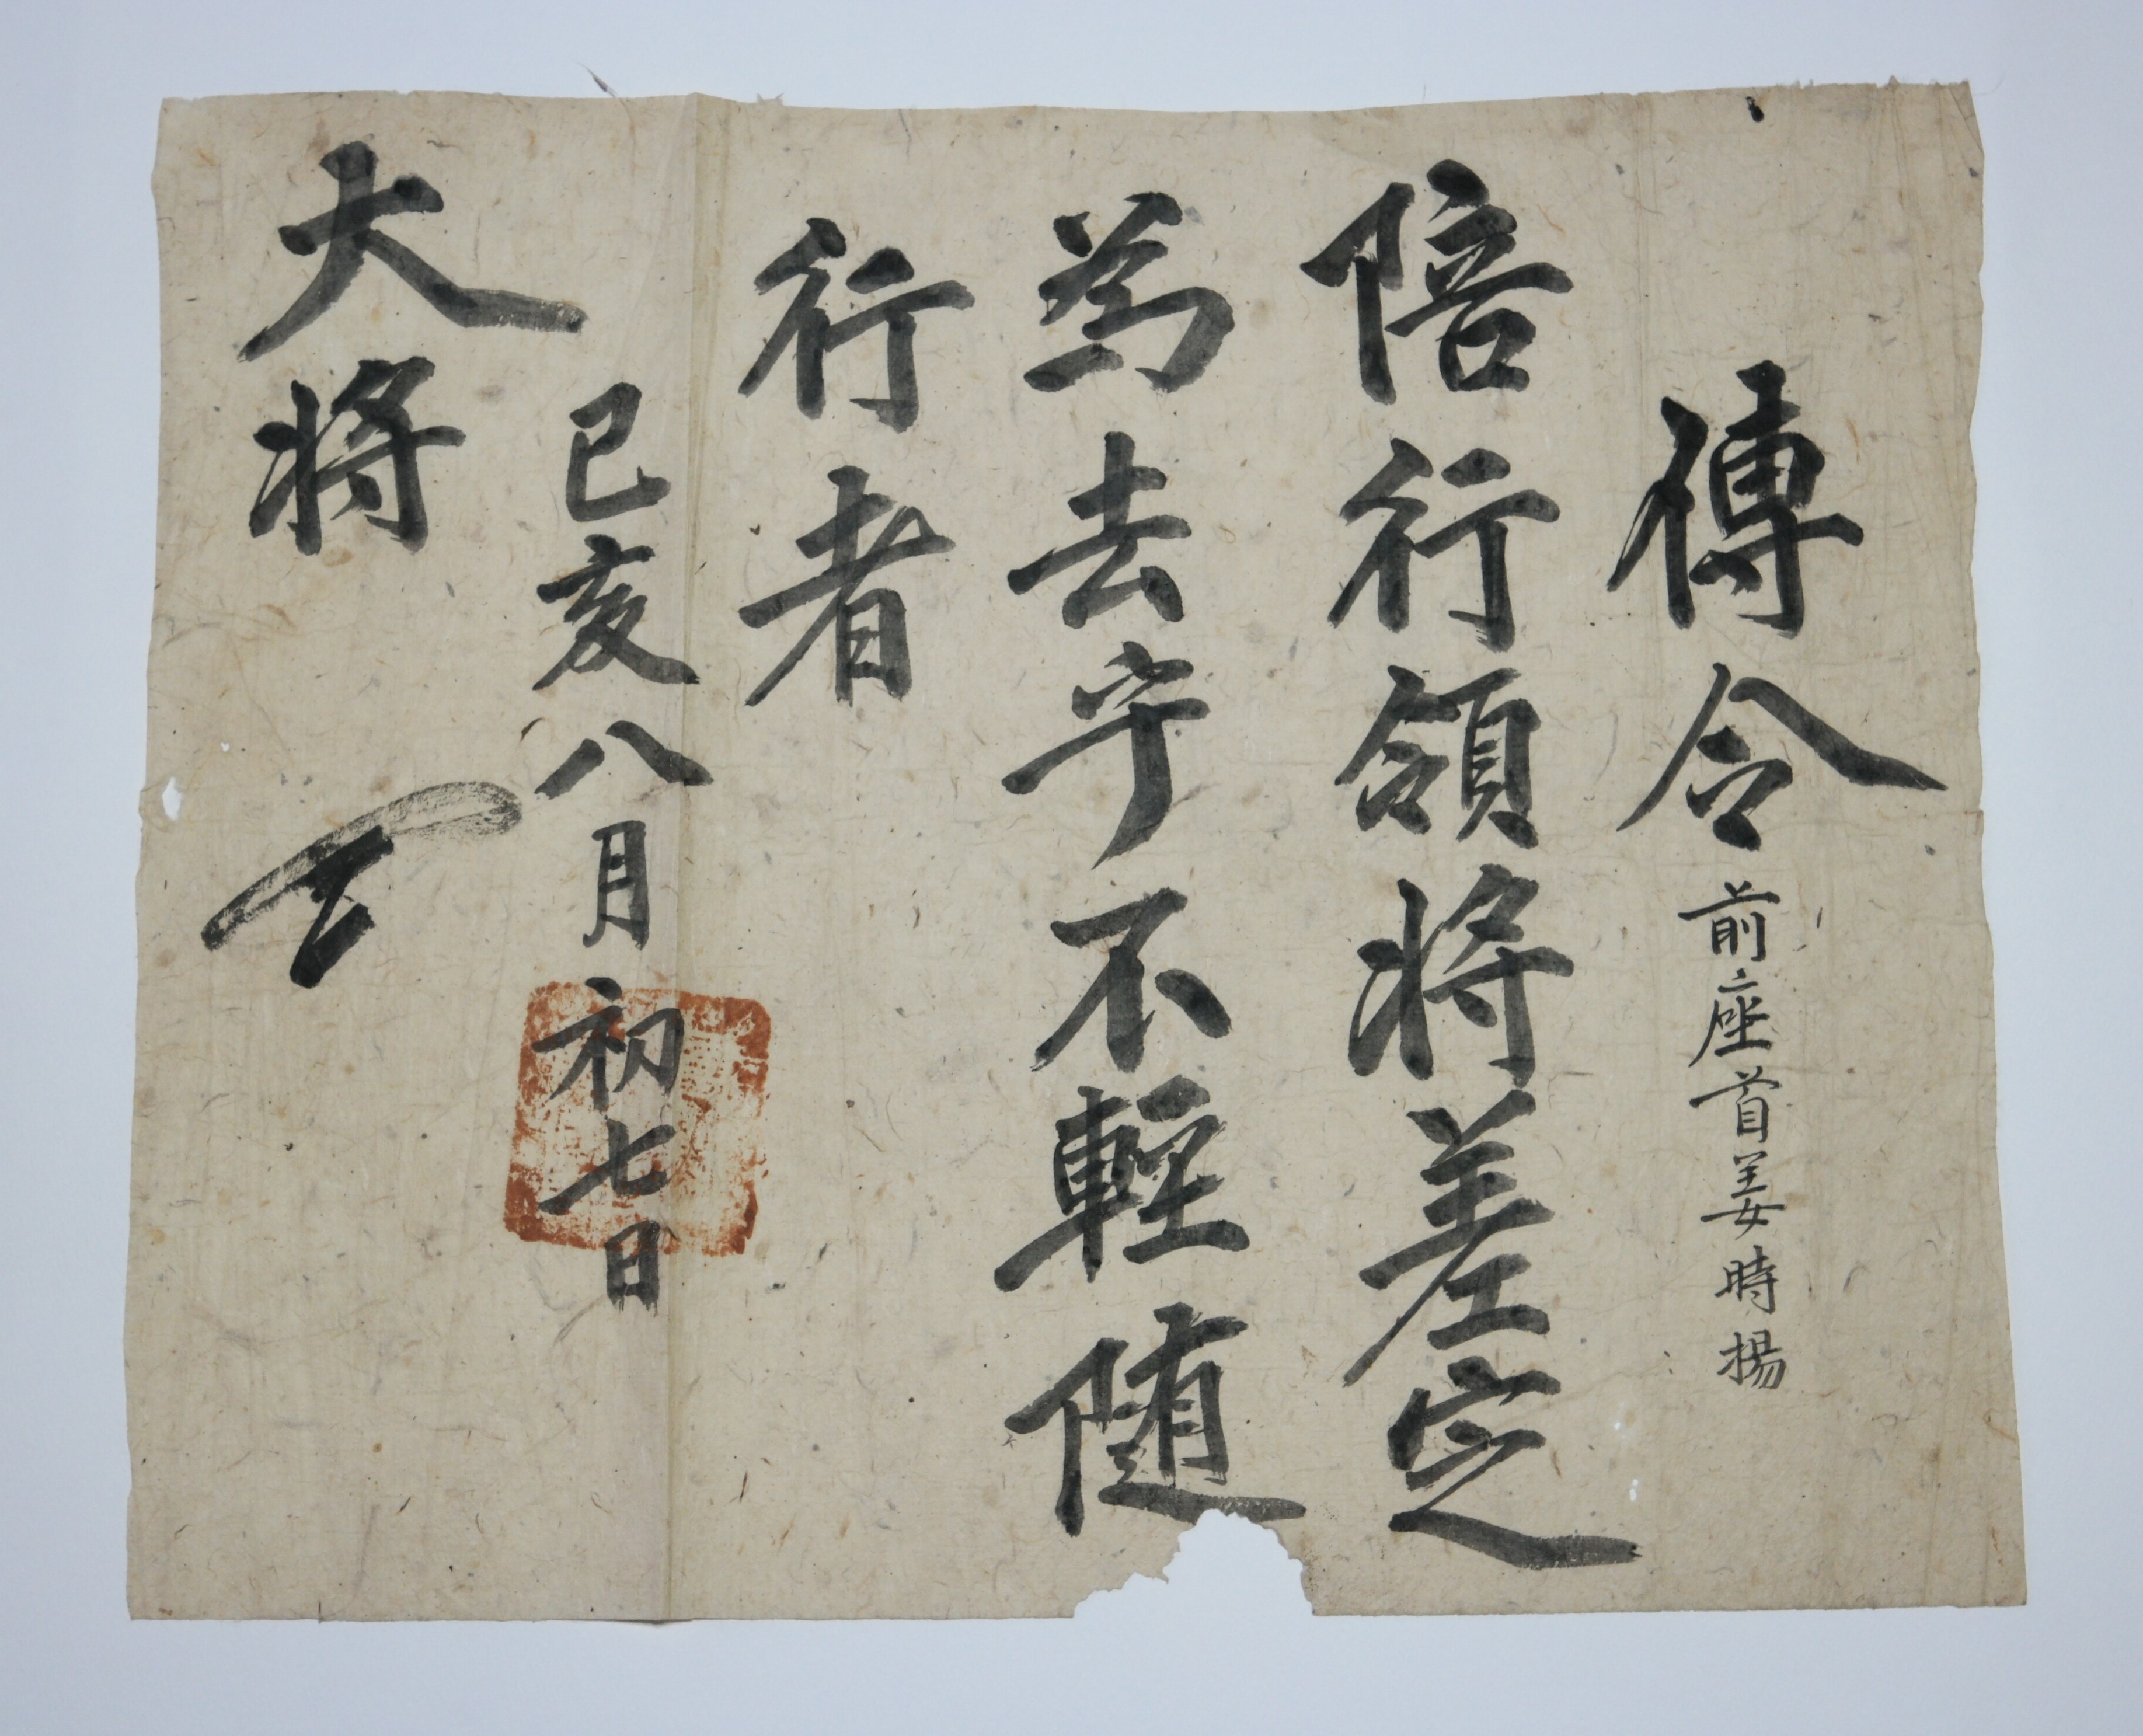 傳令 前座首姜時揚
陪行領將差定
爲去乎不輕随
行者
己亥八月初七日
大將